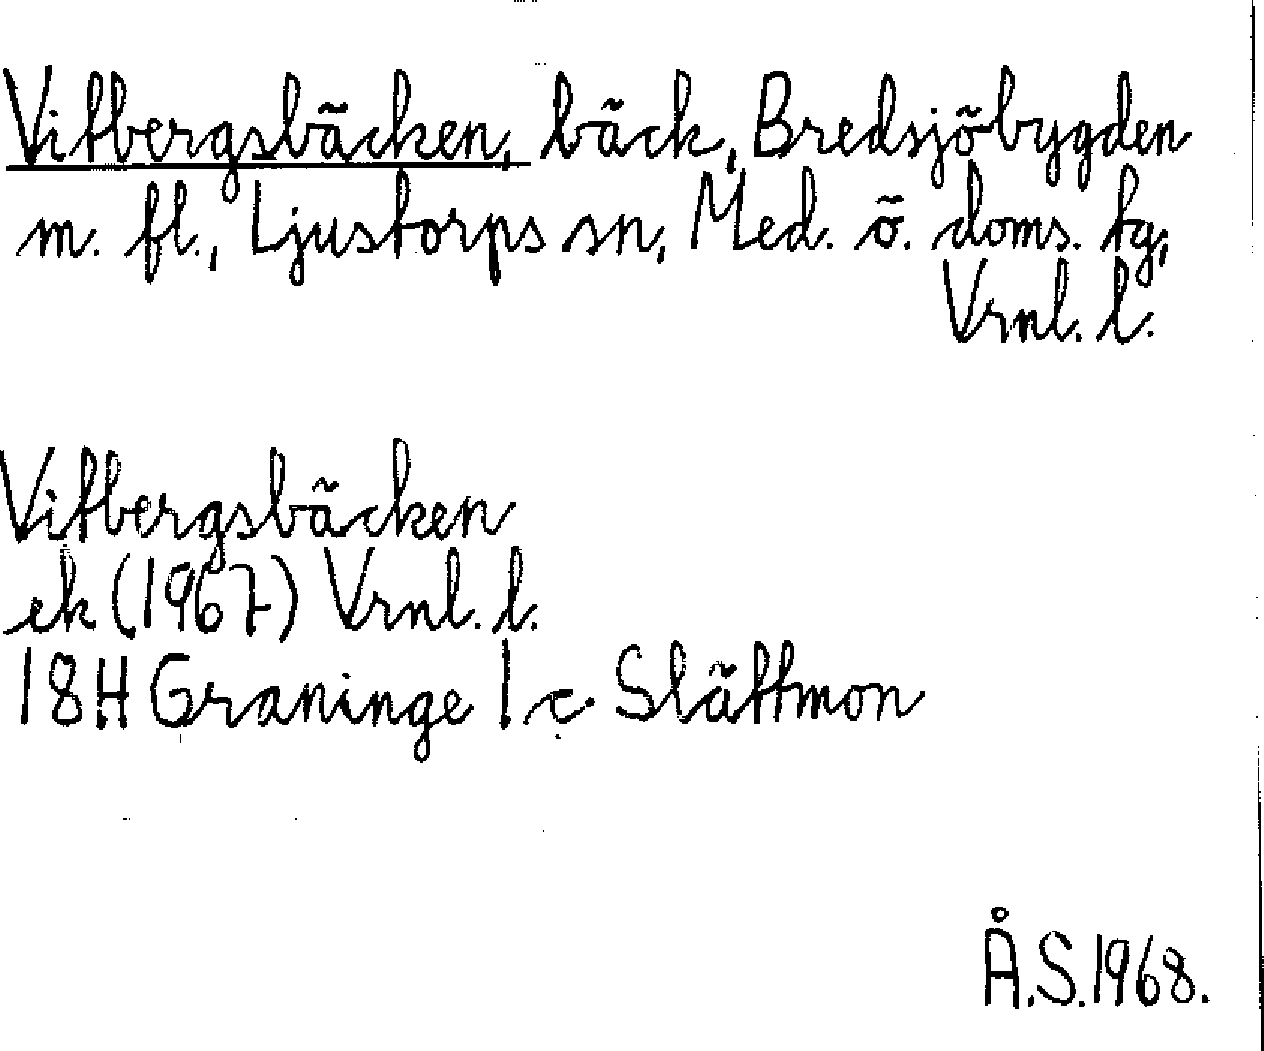 Vitbergsbäcken, bäck, Bredsjöbygden
m. fl., Ljustorps sn, Med. ö. doms. tg,
Vrnl. l.
Vitbergsbäcken
ek (1967) Vrnl. l.
18H Graninge 1 c Slättmon
Å.S.1968.